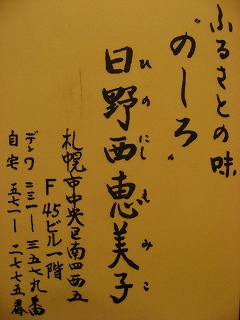 ふるさとの味
“のしろ”
日野西恵美子
ひのにしえみこ
札幌市中央区南四西五
F45ビル一階
デンワ二三一―三五七九番
自宅五七一―二七七五番